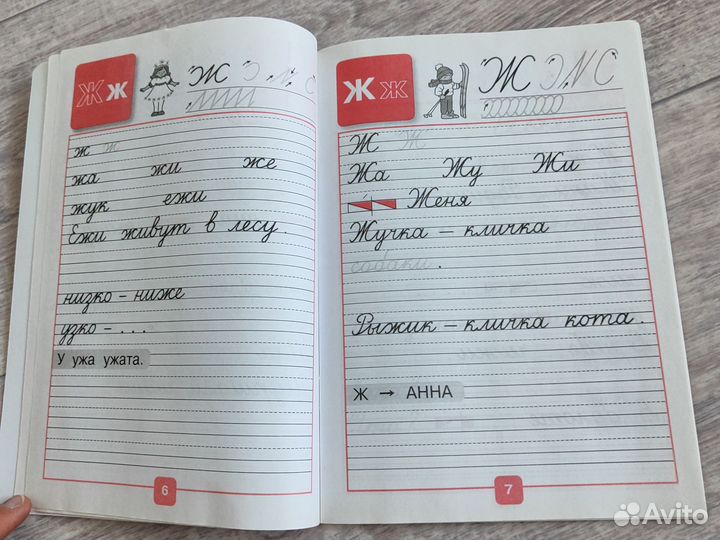 Ж ж
Ж
ж ж
жа жи же
жук ежи
Ежи живут в лесу.
низко – ниже
узко – ...
У ужа ужата.
6
Ж ж
Ж
Ж Ж
Жа Жу Жи
Женя
Жучка – кличка
собаки.
Рыжик – кличка кота.
Ж → АННА
7
Avito